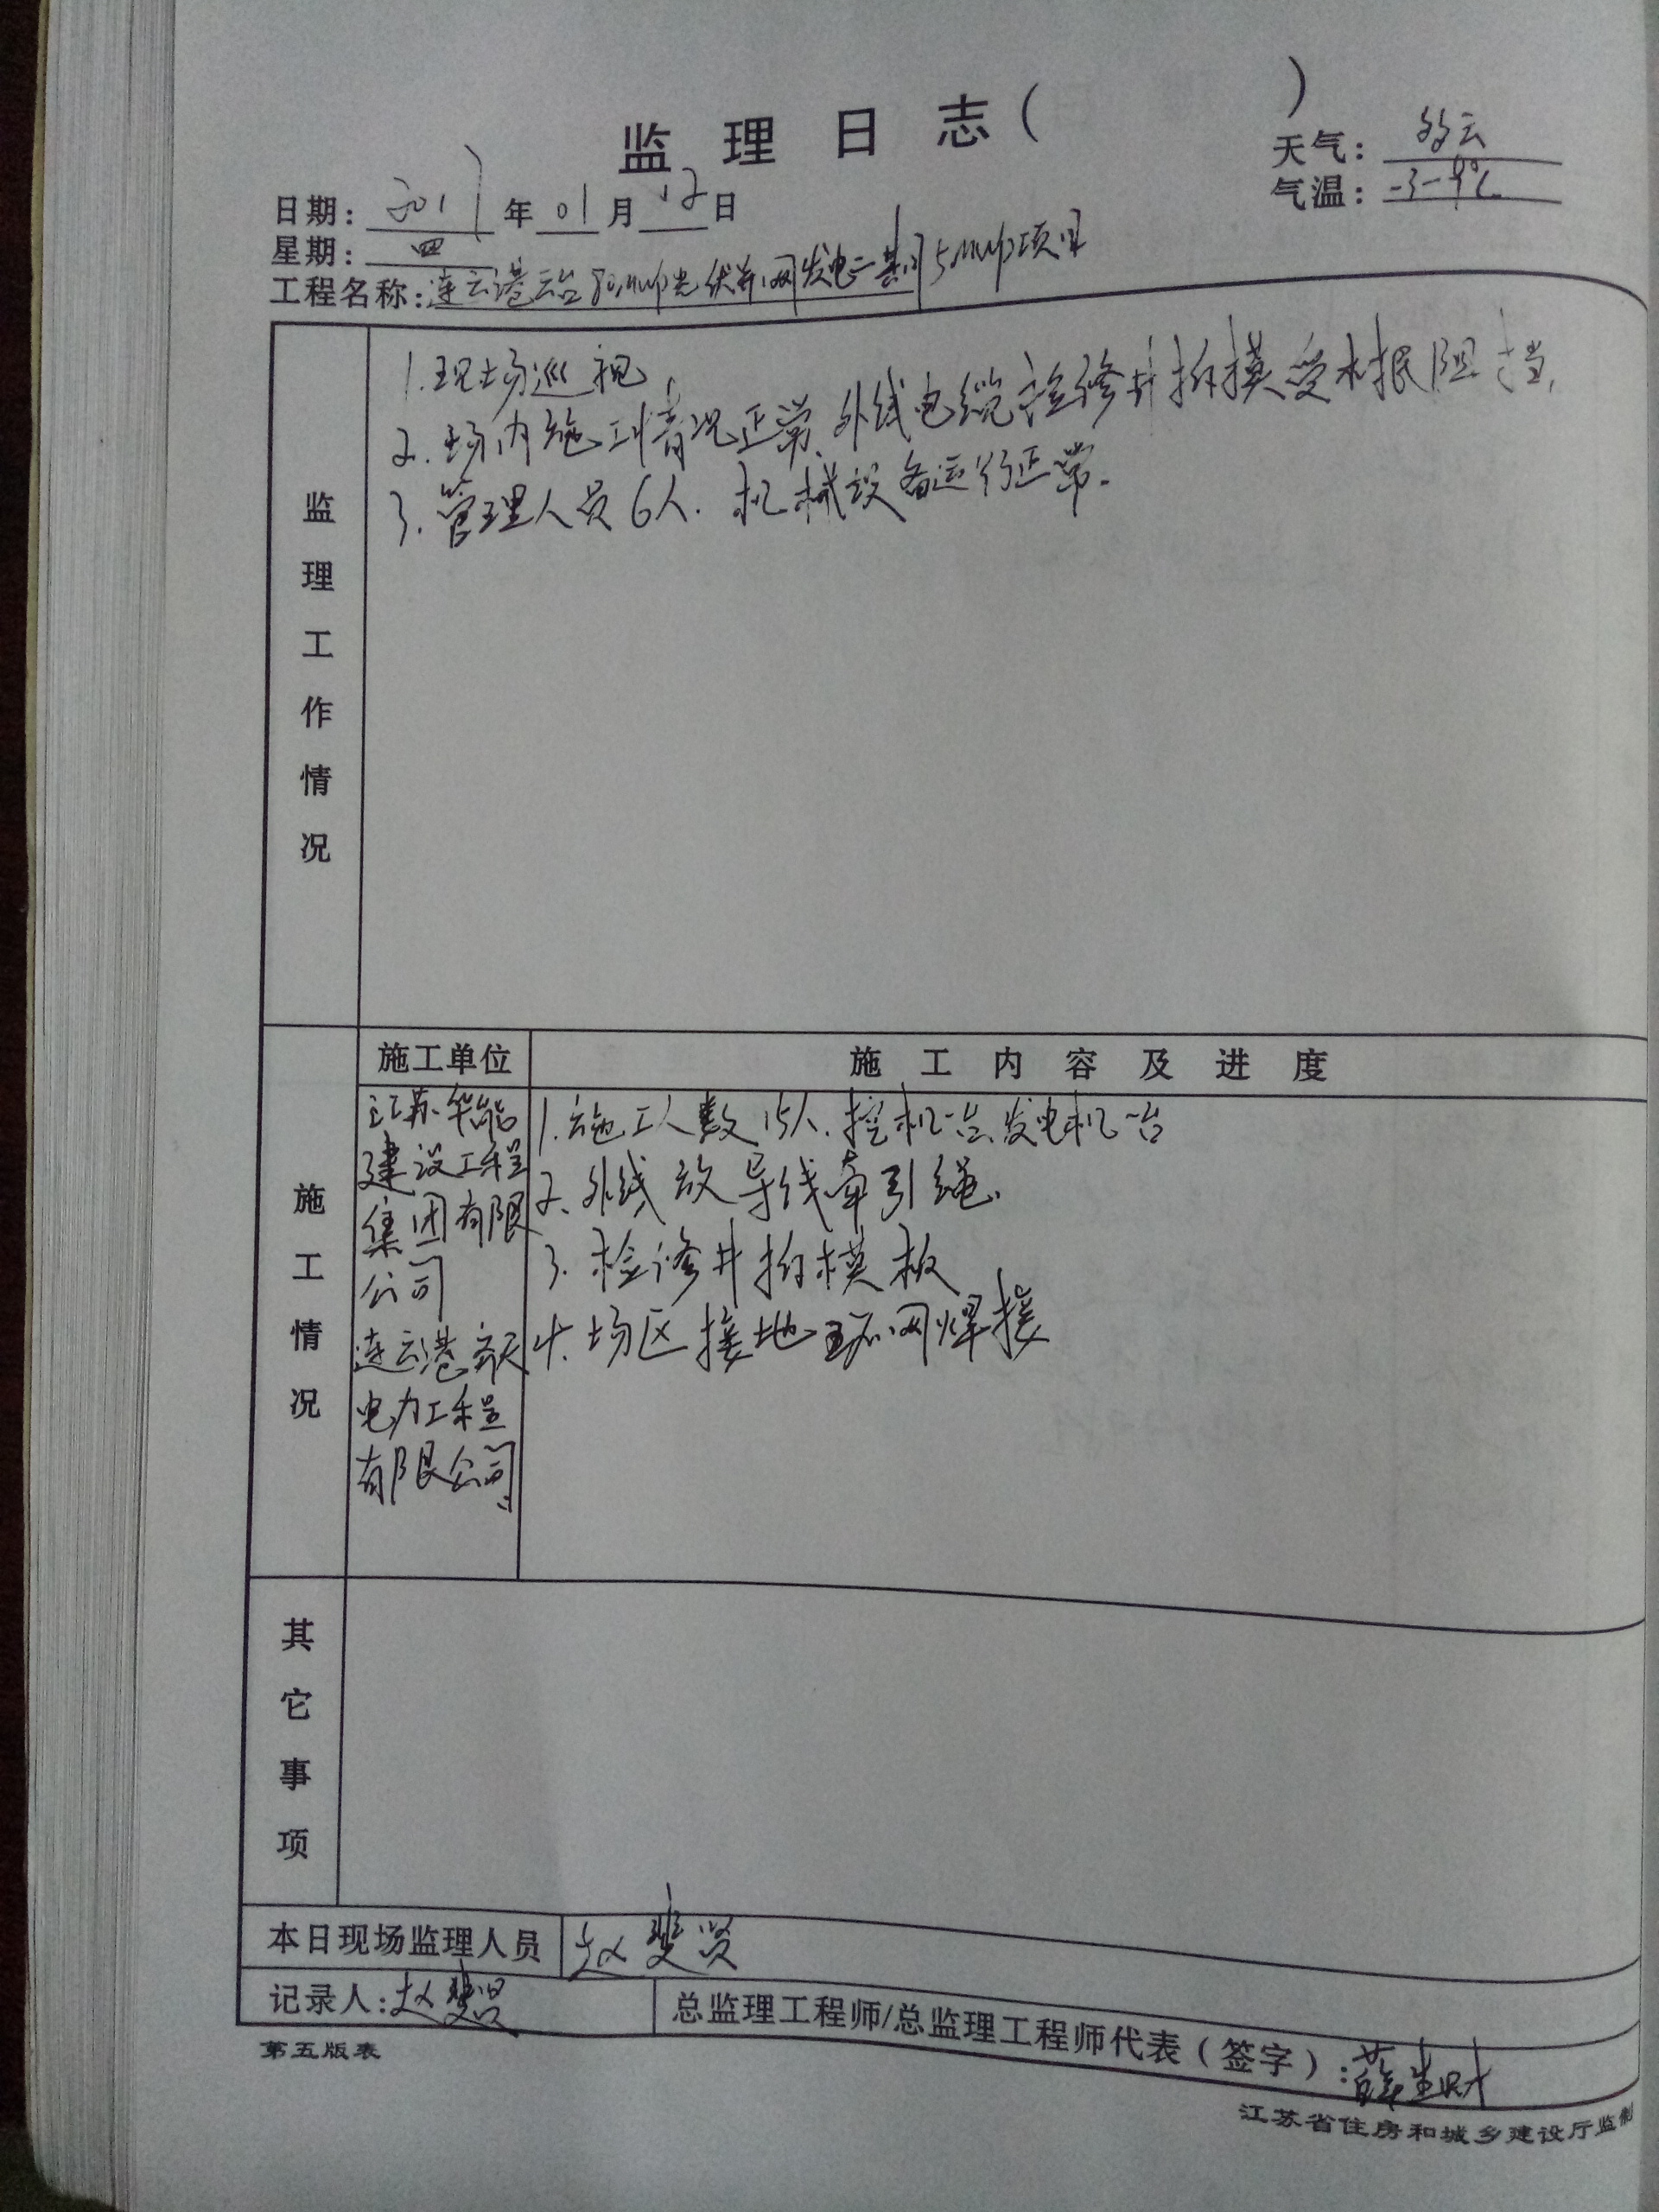 监理日志（ ）
天气：多云
日期：2017年01月12日
气温：-3-9℃
星期：四
工程名称：连云港云台80MWp光伏并网发电二期5MWp项目
监理工作情况
1.现场巡视,
2.场内施工情况正常、外线电缆检修井拆模受村民阻挡,
3.管理人员6人.机械设备运行正常.
施工单位 施工内容及进度
施工情况
江苏华能
建设工程
集团有限
公司
连云港
电力工程
有限公司
1.施工人数15人.挖机一台、发电机一台
2、外线放导线牵引绳、
3.检修井拆模板
4.场区接地环网焊接
其它事项
本日现场监理人员 赵斐贤
记录人：赵斐贤
总监理工程师/总监理工程师代表（签字）：薛
第五版表
江苏省住房和城乡建设厅监制